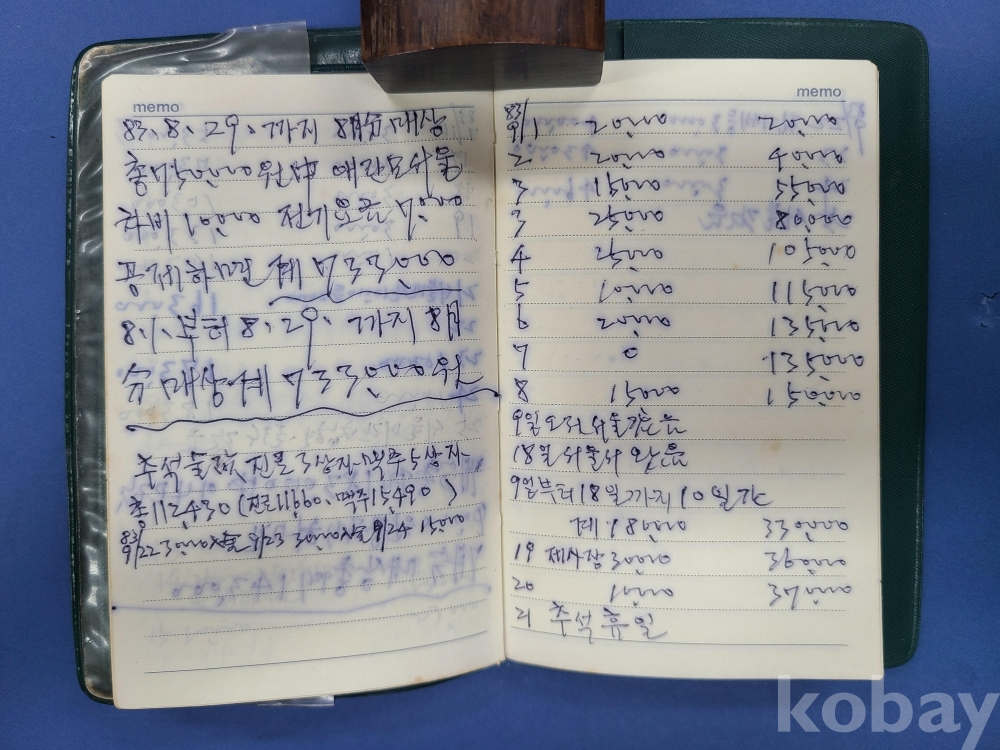 memo
83. 8. 29. 까지 8月分 매상
총 750,000 원中 애란모 서울
차비 10,000 전기요금 7,000
공제하면 계 733,000
8.1. 부터 8. 29. 까지 8月
分 매상계 733,000 원
추석 술값, 진로 3상자, 맥주 5상자
총 112,430 (진로 11,660. 맥주 15,490)
83 9/22 30,000 9/23 30,000 9/24 15,000
memo
83 9/1 20,000 20,000
2 20,000 40,000
3 15,000 55,000
3 25,000 80,000
4 25,000 105,000
5 10,000 115,000
6 20,000 135,000
7 0 135,000
8 15,000 150,000
9일 오전 서울 갔음
18일 서울서 왔음
9일부터 18일까지 10일간
계 180,000 330,000
19 제사장 30,000 360,000
20 10,000 370,000
21 추석 휴일
kobay